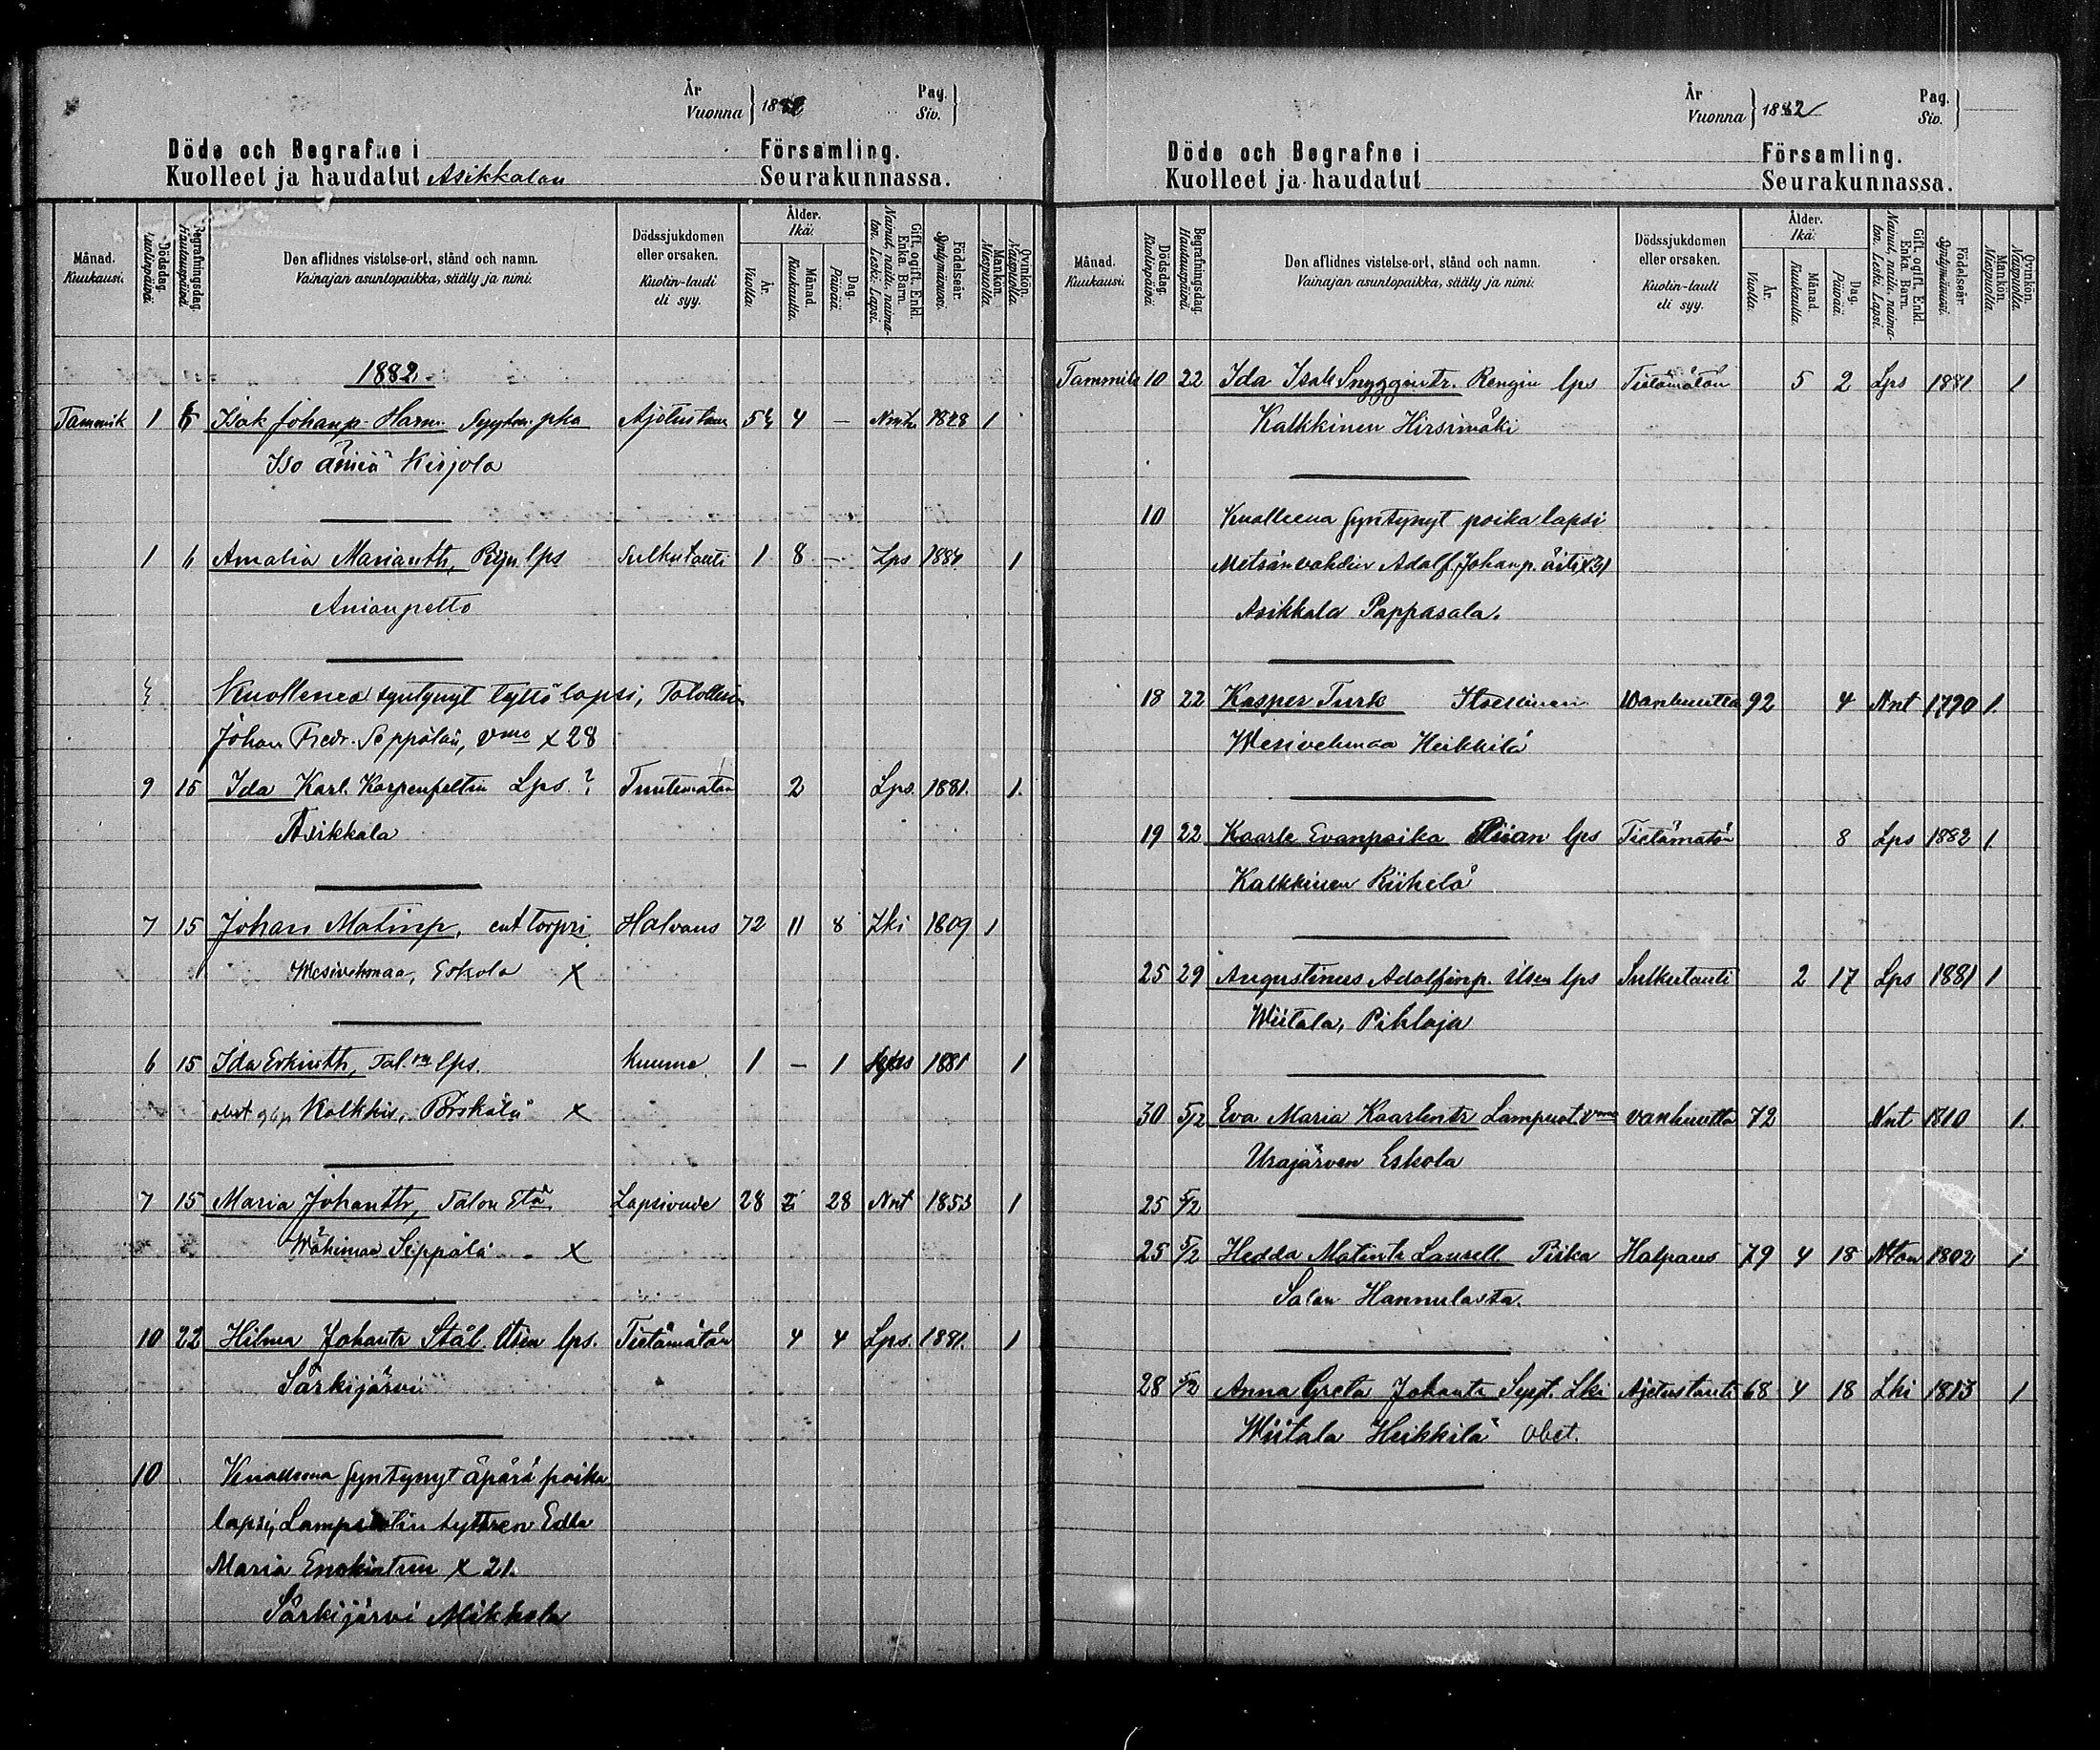 År
Vuonna } 1882 Pag.
Siv. }
Döde och Begrafne i Församling.
Kuolleet ja haudatut Asikkalan Seurakunnassa.
Månad.
Kuukausi.
Dödsdag.
Kuolinpäivä.
Begrafningsdag.
Hautauspäivä.
Den aflidnes vistelse-ort, stånd och namn.
Vainajan asuntopaikka, sääty ja nimi.
Dödssjukdomen
eller orsaken.
Kuolin-tauti
eli syy.
Ålder.
Ikä.
År.
Vuotta.
Månad.
Kuukautta.
Dag.
Päivää.
Gift, ogift, Enkl.
Enka. Barn.
Nainut, naitu, naima-
ton. Leski. Lapsi.
Födelseår.
Syntymävuosi.
Mankön.
Miespuolia.
Qvinkön.
Naispuolia.
1882
Tammik 1 6 Isak Johanp. 4 — 1828 1
Iso äiniä Kirjola
1 6 Amalia Marianth, lps Sulkutauti 1 8 — Lps 1880 1
Anianpelto
Kuolleena syntynyt tyttö lapsi, Talollisen
Johan Fredr. Seppälän, vmo x 28
9 15 Ida Karl. Karpenfeltin Lps. ? Tuntematon 2 Lps. 1881. 1.
Asikkala
7 15 Johan Matinp, ent torpri Halvaus 72 11 8 Lki 1809 1
Wesivehmaa, Eskola X
6 15 Ida Erkinth, Tal. lps. kuume 1 — 1 Lps 1881 1
Kalkkis, Pörskälä X
7 15 Maria Johanth, Talon Lapsivuode 28 28 Nnt 1853 1
Wähimaa Seppälä X
10 22 Hilma Johantr Stål. Itsen lps. Tietämätön 4 4 Lps. 1881. 1
Särkijärvi
10 Kuolleena syntynyt äpärä poika
lapsi, Lampuotin tyttren Edla
Maria Enokintrn x 21.
Särkijärvi Mikkola
År
Vuonna } 1882 Pag.
Siv. }
Döde och Begrafne i Församling.
Kuolleet ja haudatut Seurakunnassa.
Månad.
Kuukausi.
Dödsdag.
Kuolinpäivä.
Begrafningsdag.
Hautauspäivä.
Den aflidnes vistelse-ort, stånd och namn.
Vainajan asuntopaikka, sääty ja nimi.
Dödssjukdomen
eller orsaken.
Kuolin-tauti
eli syy.
Ålder.
Ikä.
År.
Vuotta.
Månad.
Kuukautta.
Dag.
Päivää.
Gift, ogift, Enkl.
Enka. Barn.
Nainut, naitu, naima-
ton. Leski. Lapsi.
Födelseår.
Syntymävuosi.
Mankön.
Miespuolia.
Qvinkön.
Naispuolia.
Tammik 10 22 Ida Isak Snyggintr. Rengin lps Tietämätön 5 2 Lps 1881 1
Kalkkinen Hirsimäki
10 Kuolleena syntynyt poika lapsi
Metsänvahdin Adolf Johanp. äiti x 31
Asikkala Pappasala.
18 22 Kasper Turk Itsellinen Wanhuutta 92 4 Nnt 1790 1.
Wesivehmaa Heikkilä
19 22 Kaarle Evanpoika Piian lps Tietämätön 8 Lps 1882 1.
Kalkkinen Riihelä
25 29 Augustinus Adolfinp. Itsen lps Sulkutauti 2 17 Lps 1881 1
Wiitala, Pihlaja
30 5/2 Eva Maria Kaarlentr Lampuot. vmo vanhuutta 72 Nnt 1810 1.
Urajärven Eskola
25 5/2
25 5/2 Hedda Matintr Laurell Piika Halpaus 79 4 18 Ntön 1802 1
Salan Hannulasta.
28 5/2 Anna Greta Johantr Sypt. Lki Ajetustauti 68 4 18 Lki 1813 1
Wiitala Heikkilä obet.